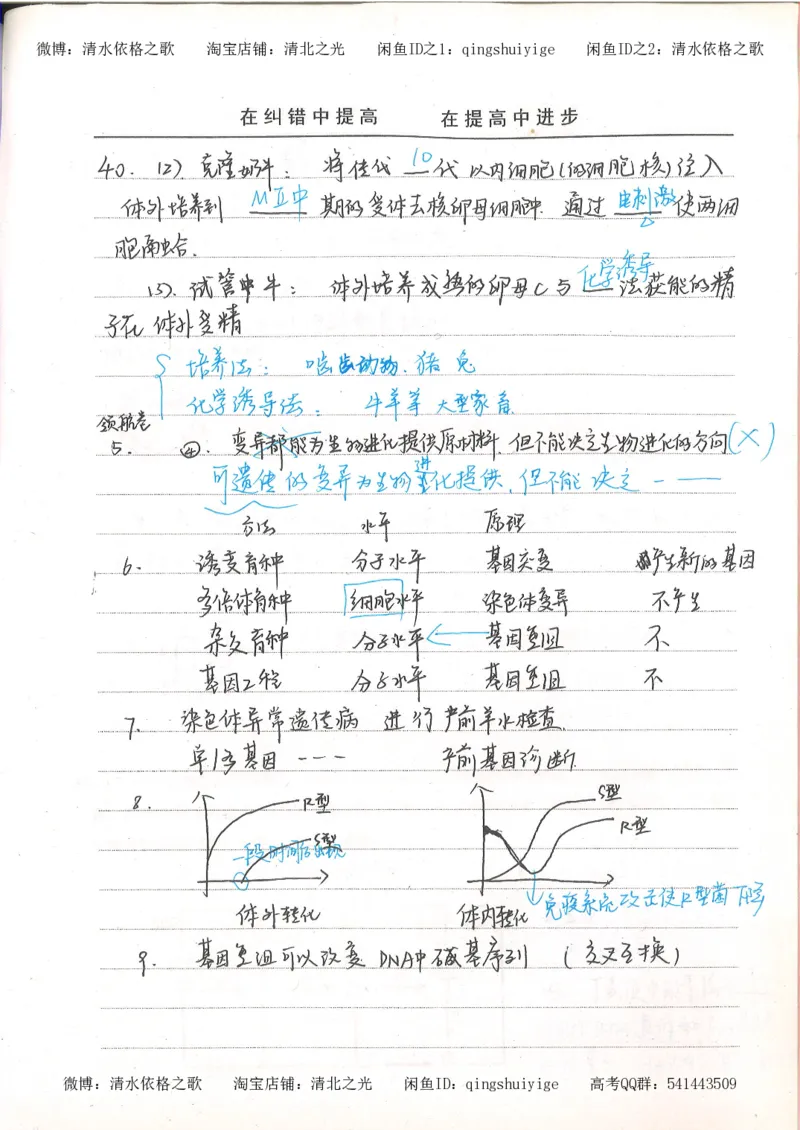 微博：清水依格之歌 淘宝店铺：清北之光 闲鱼ID之1：qingshuiyige 闲鱼ID之2：清水依格之歌
在纠错中提高 在提高中进步
40. (2). 克隆奶牛： 将传代 10 代以内细胞(的细胞核)注入
体外培养到 MⅡ中 期的受体去核卵母细胞中. 通过 电刺激 使两细
胞融合.
(3). 试管牛： 体外培养成熟的卵母C与 化学诱导 法获能的精
子在体外受精
培养法： 啮齿动物. 猪 兔
化学诱导法： 牛羊等 大型家畜
领航卷
5. ④. 变异都能为生物进化提供原材料，但不能决定生物进化的方向(×)
可遗传的变异为生物进化提供，但不能决定 — ——
方法 水平 原理
6. 诱变育种 分子水平 基因突变 产生新的基因
多倍体育种 细胞水平 染色体变异 不产生
杂交育种 分子水平 ← 基因重组 不
基因工程 分子水平 基因重组 不
7. 染色体异常遗传病 进行产前羊水检查.
单/多基因 --- 产前基因诊断.
8. R型 S型 一段时间后出现 体外转化
S型 R型 体内转化 免疫系统攻击使R型菌下降
9. 基因重组可以改变DNA中碱基序列 (交叉互换)
微博：清水依格之歌 淘宝店铺：清北之光 闲鱼ID：qingshuiyige 高考QQ群：541443509